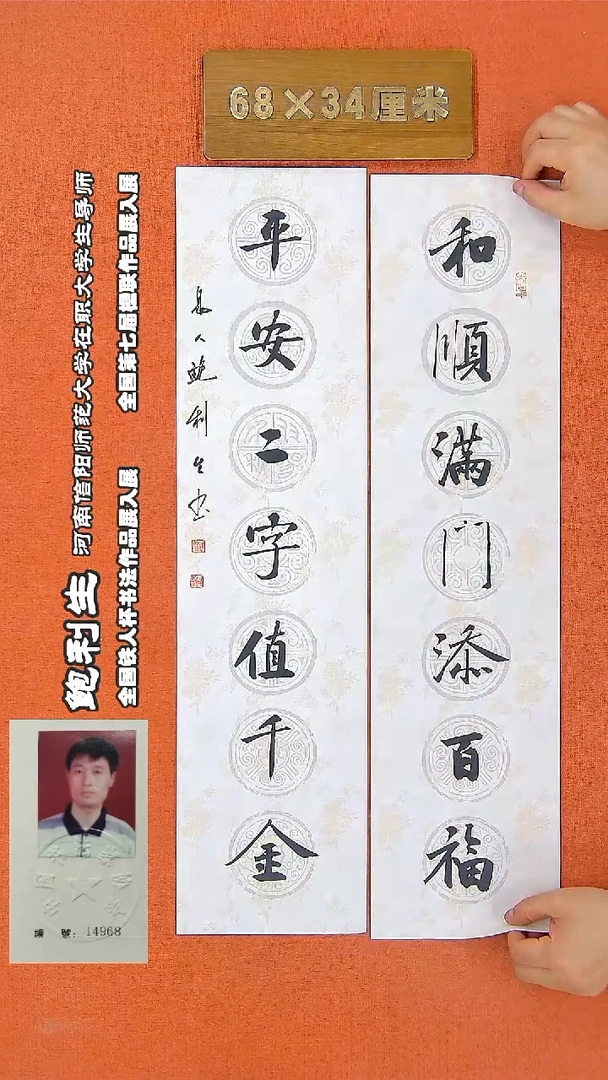 68×34厘米
和順滿門添百福
平安二字值千金
息人鮑利生书
鲍利生
河南信阳师范大学在职大学生导师
全国铁人杯书法作品展入展
全国第七届楹联作品展入展
編 號：14968